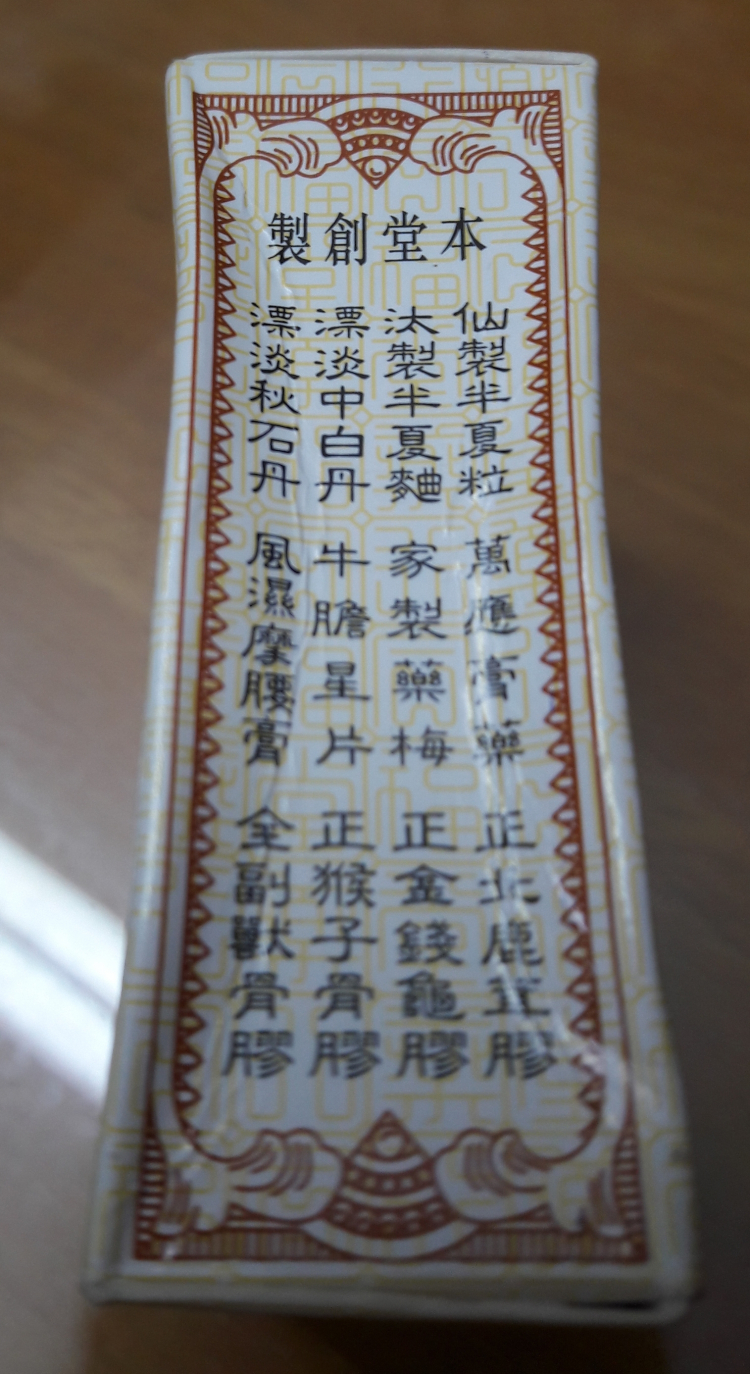 本堂創製
仙製半夏粒 萬應膏藥 正北鹿茸膠
汰製半夏麯 家製藥梅 正金錢龜膠
漂淡中白丹 牛膽星片 正猴子骨膠
漂淡秋石丹 風濕摩腰膏 全副獸骨膠